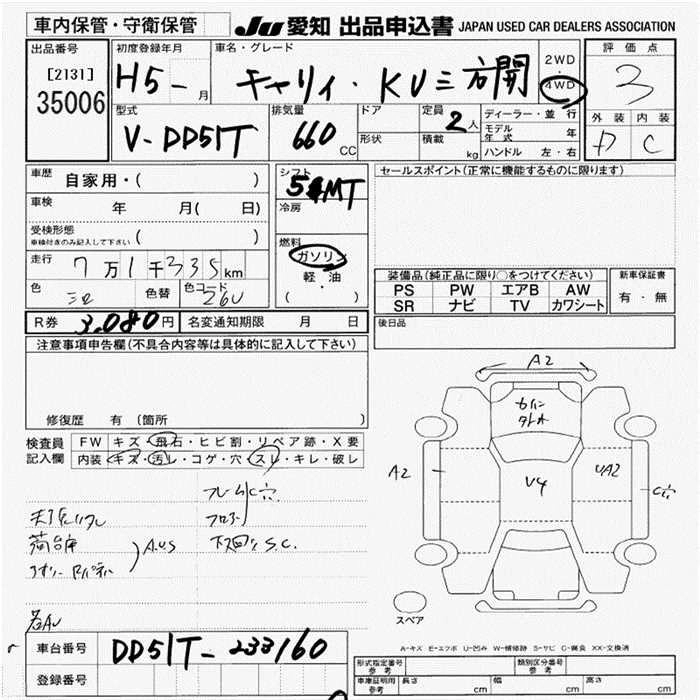 車内保管・守衛保管
JU 愛知 出品申込書 JAPAN USED CAR DEALERS ASSOCIATION
出品番号
[2131]
35006
初度登録年月
H5-
月
車名・グレード
キャリイ・KU三方開
2WD
・
4WD
評価点
3
外装 内装
D C
型式
V-DD51T
排気量
660
CC
ドア
形状
定員
2人
積載
kg
ディーラー・並行
モデル年式 年
ハンドル 左・右
車歴 自家用・( )
車検 年 月( 日)
受検形態
車検付きのみ記入して下さい ( )
走行 7万1千335km
色
色替
色コード
26U
シフト
5MT
冷房
燃料
ガソリン
・
軽・油
( )
セールスポイント(正常に機能するものに限ります)
装備品(純正品に限り○をつけてください)
PS PW エアB AW
SR ナビ TV カワシート
新車保証書
有・無
R券 3,080円 名変通知期限 月 日
後日品
注意事項申告欄(不具合内容等は具体的に記入して下さい)
修復歴 有 〔箇所 〕
検査員
記入欄
FW キズ・飛石・ヒビ割・リペア跡・X要
内装 キズ・汚レ・コゲ・穴・スレ・キレ・破レ
フレームC穴
フロアS
下回りS.C.
荷台
A.U.S
A2
A2
V4
UA2
C穴
スペア
A-キズ E-エクボ U-凹み W-補修跡 S-サビ C-腐食 XX-交換済
車台番号 DD51T-233160
登録番号
形式指定番号
参考
類別区分番号
参考
車庫証明用
参考
長さ cm 幅 cm 高さ cm